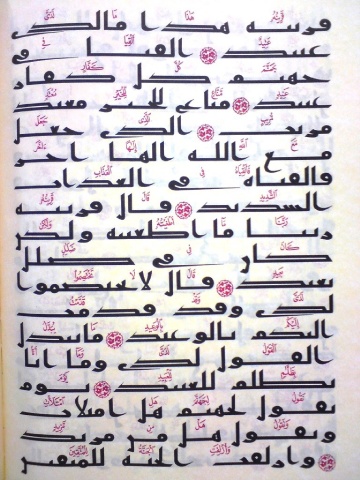 قرينه هذا ما لدى
عتيد ۝ القيا فى
جهنم كل كفار
عنيد ۝ مناع للخير معتد
مريب ۝ الذى جعل
مع الله الها اخر
فالقياه فى العذاب
الشديد ۝ قال قرينه
ربنا ما اطغيته ولكن
كان فى ضلل
بعيد ۝ قال لا تختصموا
لدى وقد قدمت
اليكم بالوعيد ۝ ما يبدل
القول لدى وما انا
بظلم للعبيد ۝ يوم
نقول لجهنم هل امتلات
وتقول هل من مزيد
۝ وازلفت الجنة للمتقين